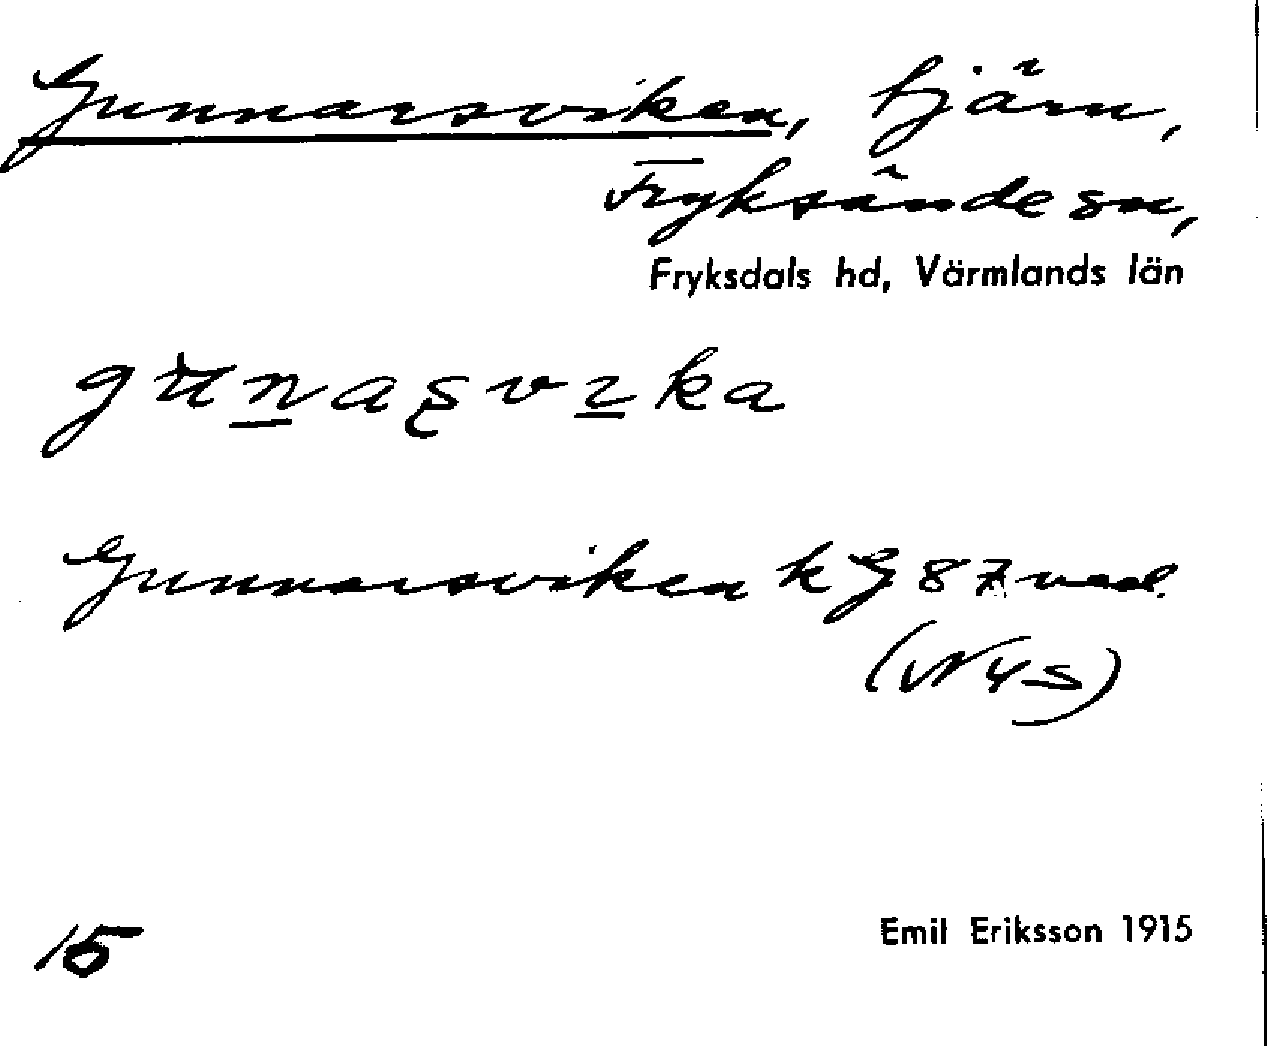 Gunnarsviken, tjärn,
Fryksände sn,
Fryksdals hd, Värmlands län
Gunnarsviken k G 87
15
Emil Eriksson 1915